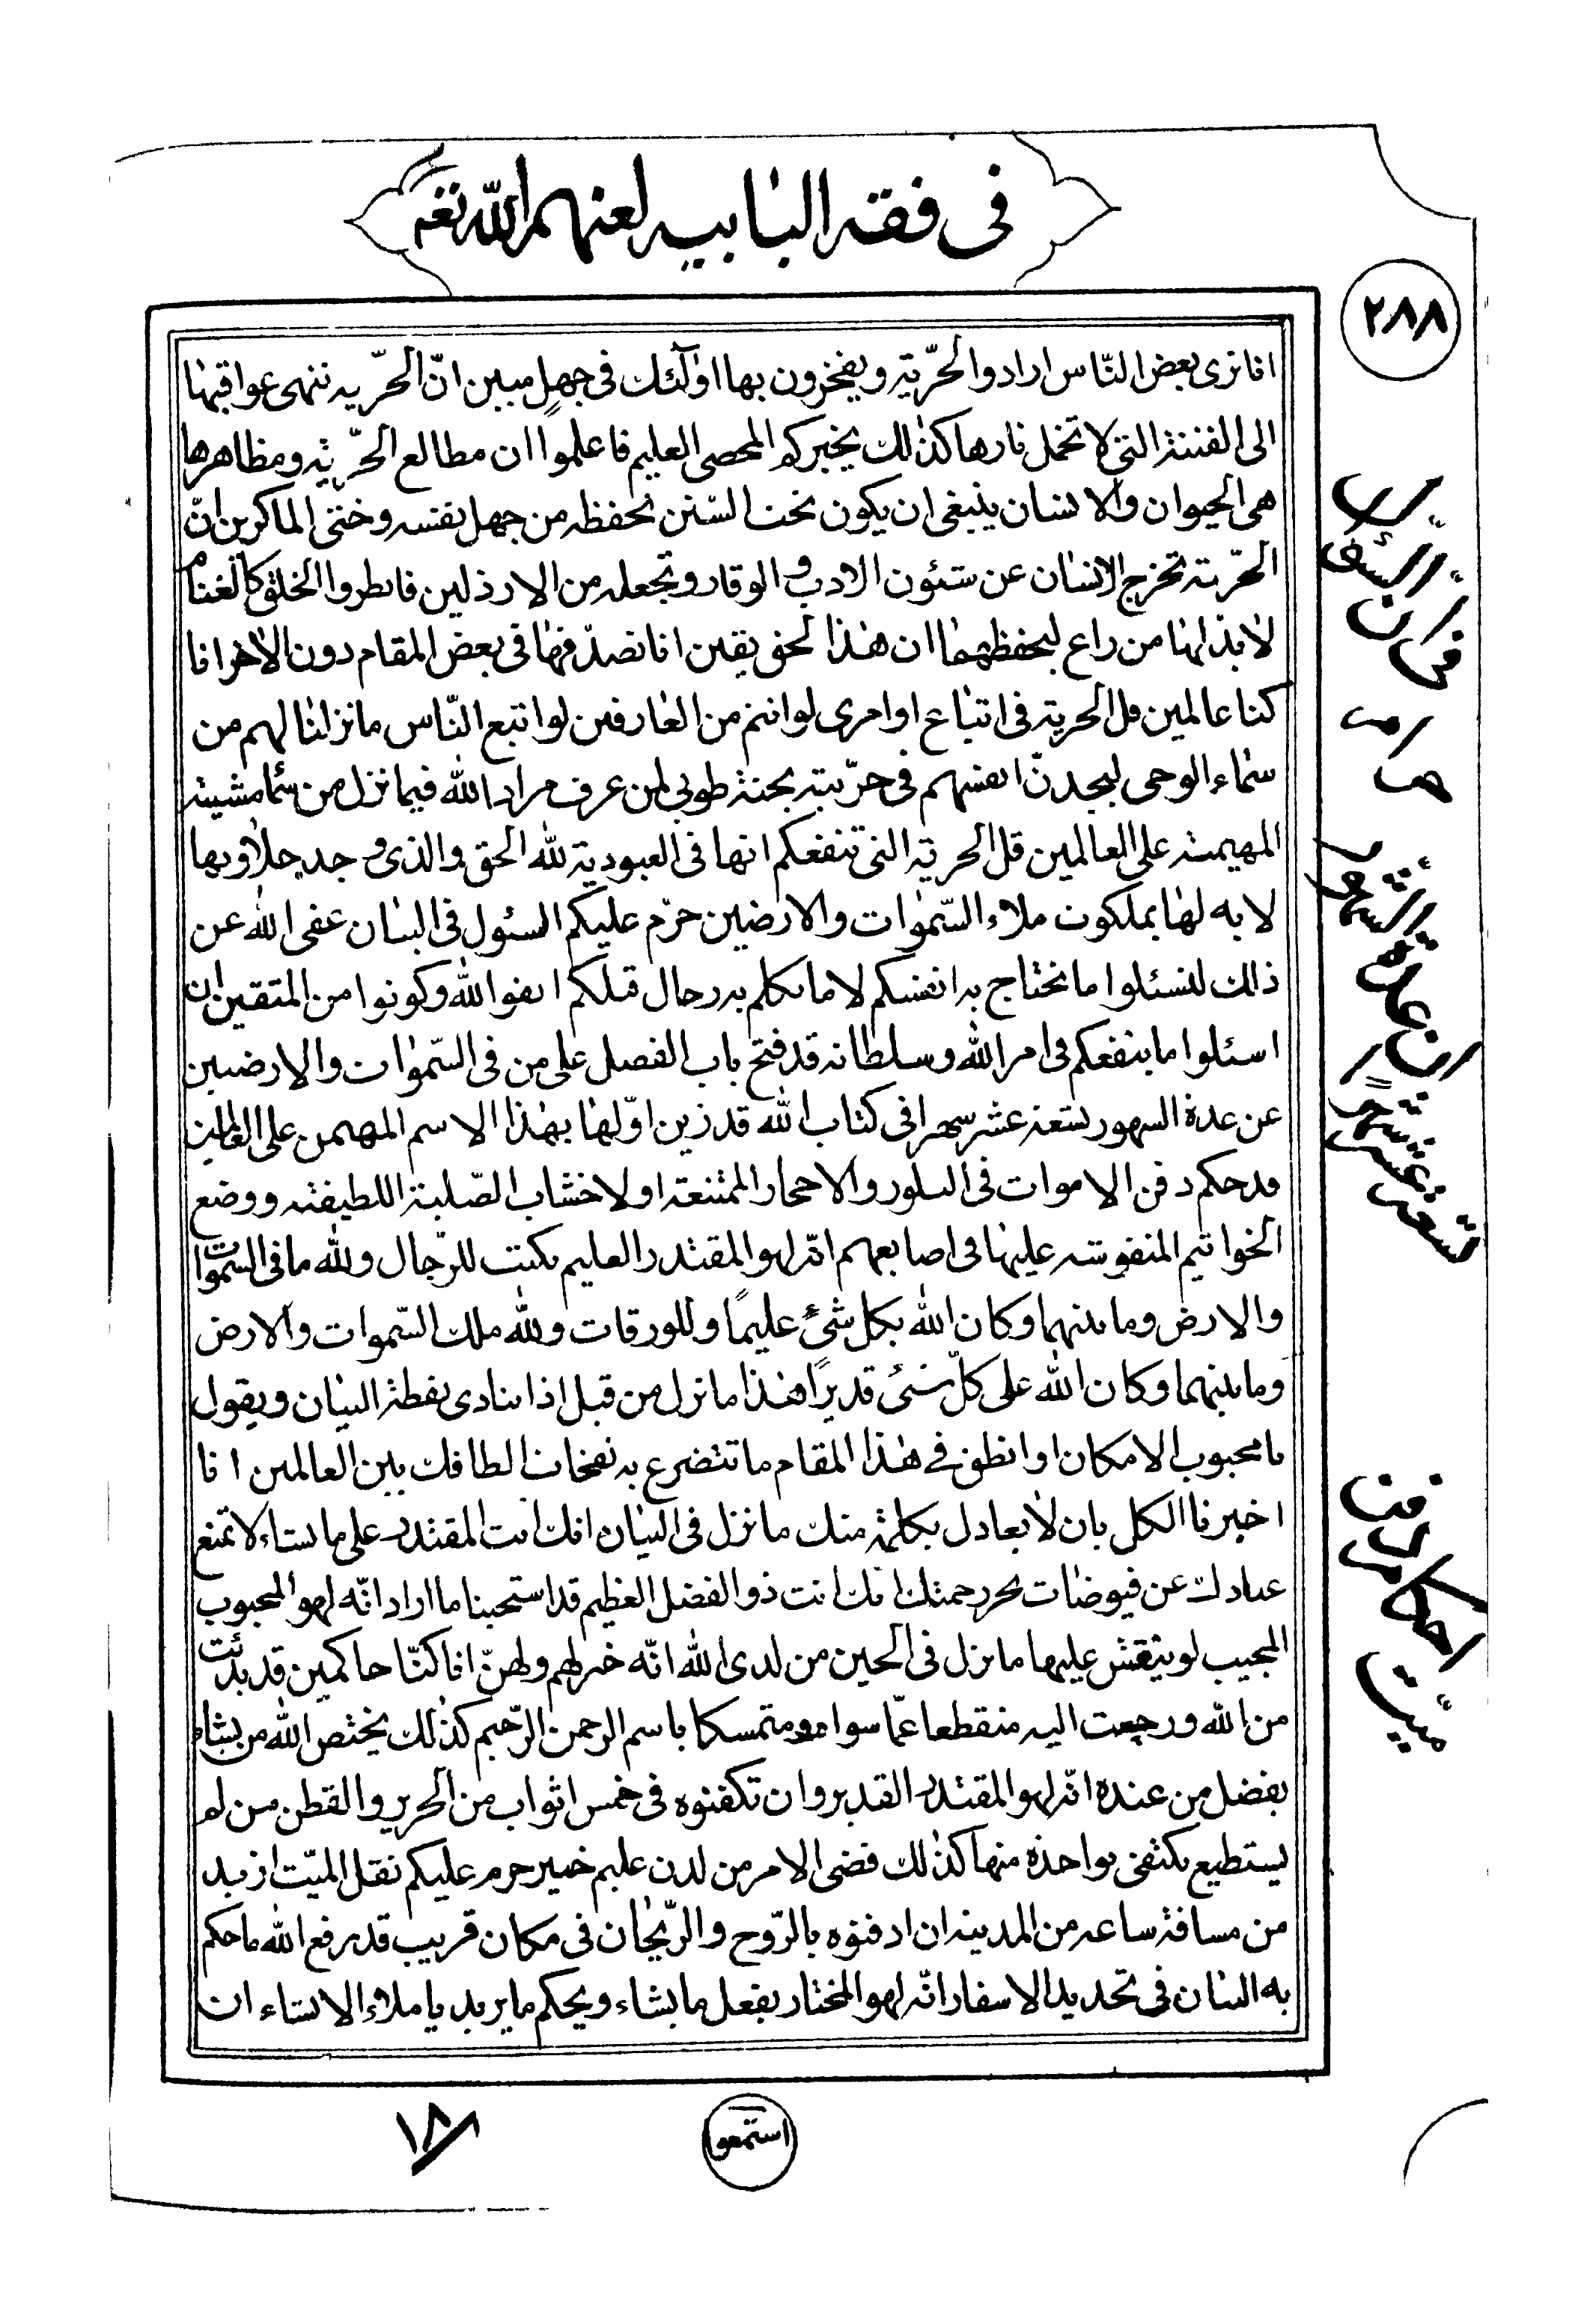 في فقه البابيه لعنهم الله تعه
٢٨٨
انا نرى بعض الناس ارادوا الحرّيّة ويفخرون بها اولٓئك في جهلٍ مبين انّ الحرّيه تنتهى عواقبها
الى الفتنة التي لا تخمد نارها كذلك يخبركم المحصى العليم فاعلموا ان مطالع الحرّية ومظاهرها
هى الحيوان والانسان ينبغى ان يكون تحت السّنن تحفظه من جهل نفسه وختى الماكرين انّ
الحرّية تخرج الانسان عن شئون الادب والوقار وتجعله من الارذلين فانطروا الخلق كالغنام
لا بدّ لها من راع ليحفظهما ان هذا لحق يقين انا نصدّقها في بعض المقام دون الاخر انا
كنا عالمين قل الحرية في اتباع اوامرى لو انتم من العارفين لو اتبع النّاس ما نزلنا لهم من
سماء الوحى ليجدنّ انفسهم في حرّيته بحتة طوبى لمن عرف مراد الله فيما نزل من سما مشيته
المهيمنه على العالمين قل الحرية التى تنفعكم انها في العبودية لله الحق والذى وجد حلاوبها
لا به لها بملكوت ملاء السّموات والارضين حرّم عليكم السئول في البيان عفى الله عن
ذالك لتسئلوا ما تحتاج به انفسكم لا ما تكلم به رجال قبلكم اتقوا الله وكونوا من المتقين ان
اسئلوا ما ينفعكم في امر الله وسلطانه قد فتح باب الفضل على من في السّموات والارضين
عن عدة السهور تسعة عشر سهرا في كتاب الله قد زين اوّلها بهذا الاسم المهيمن على العالمين
قد حكم دفن الاموات في البلور والاحجار الممتنعة او لاخشاب الصّلبة اللطيفة ووضع
الخواتيم المنقوشه عليها في اصابعهم انّه لهو المقتدر العليم يكتب للرّجال ولله ما في السّموات
والارض وما بينهما وكان الله بكل شئ عليمًا وللورقات ولله ملك السّموات والارض
وما بينهما وكان الله على كلّ شئ قديرًا هذا ما نزل من قبل اذا ينادى نقطة البيان ويقول
يا محبوب الامكان اوانطق في هذا المقام ما تتضرع به نفحات الطافك بين العالمين انا
اخبرنا الكل بان لا يعادل بكلمة منك ما نزل في البيان انك انت المقتدر على ما تشاء لا تمنع
عبادك عن فيوضات بحر رحمتك انك انت ذو الفضل العظيم قد استجبنا ما اراد انّه لهو المحبوب
المجيب لو ينقش عليها ما نزل في الحين من لدى الله انّه خير لهم ولهنّ انا كنّا حاكمين قد بدئت
من الله ورجعت اليه منقطعا عمّا سواه ومتمسكا باسم الرحمن الرّحيم كذلك يختص الله من يشاء
بفضل من عنده انّه لهو المقتدر القدير وان تكفنوه في خمس اثواب من الحرير والقطن من لم
يستطيع يكتفى بواحدة منها كذلك قضى الامر من لدن عليم خبير حرم عليكم نقل الميّت ازيد
من مسافة ساعه من المدينه ان ادفنوه بالرّوح والرّيحان في مكان قريب قد رفع الله ما حكم
به البيان في تحديد الاسفار انّه لهو المختار يفعل ما يشاء ويحكم ما يريد يا ملاء الانشاء ان
حرام
ان عدة الشهور
تسعة عشر شهرًا
احكام دفن
ميّت
استمعوا
١٨٨